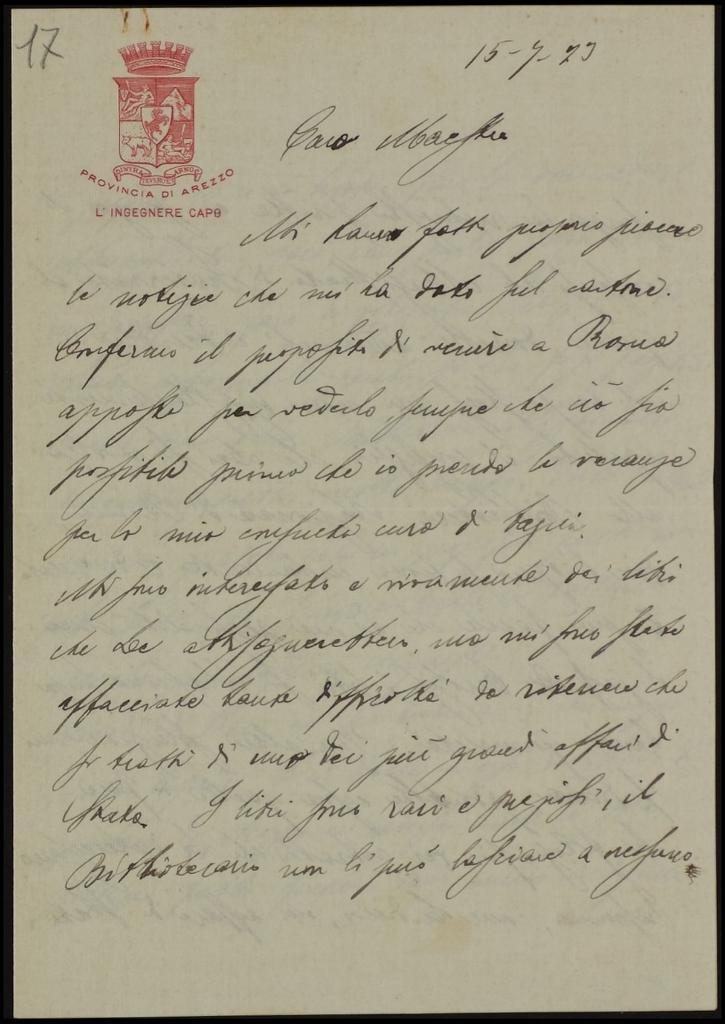 17
15-7-23
Caro Maestro
INTRA TEVERIM ET ARNUM
PROVINCIA DI AREZZO
L'INGEGNERE CAPO
Mi hanno fatto proprio piacere
le notizie che mi ha dato sul cartone.
Confermo il proposito di venire a Roma
apposta per vederlo, sempre che ciò sia
possibile prima che io prenda le vacanze
per la mia consueta cura di bagni.
Mi sono interessato e vivamente dei libri
che Le abbisognerebbero, ma mi sono state
affacciate tante difficoltà da ritenere che
si tratti di uno dei più grandi affari di
Stato. I libri sono rari e preziosi, il
Bibliotecario non li può lasciare a nessuno